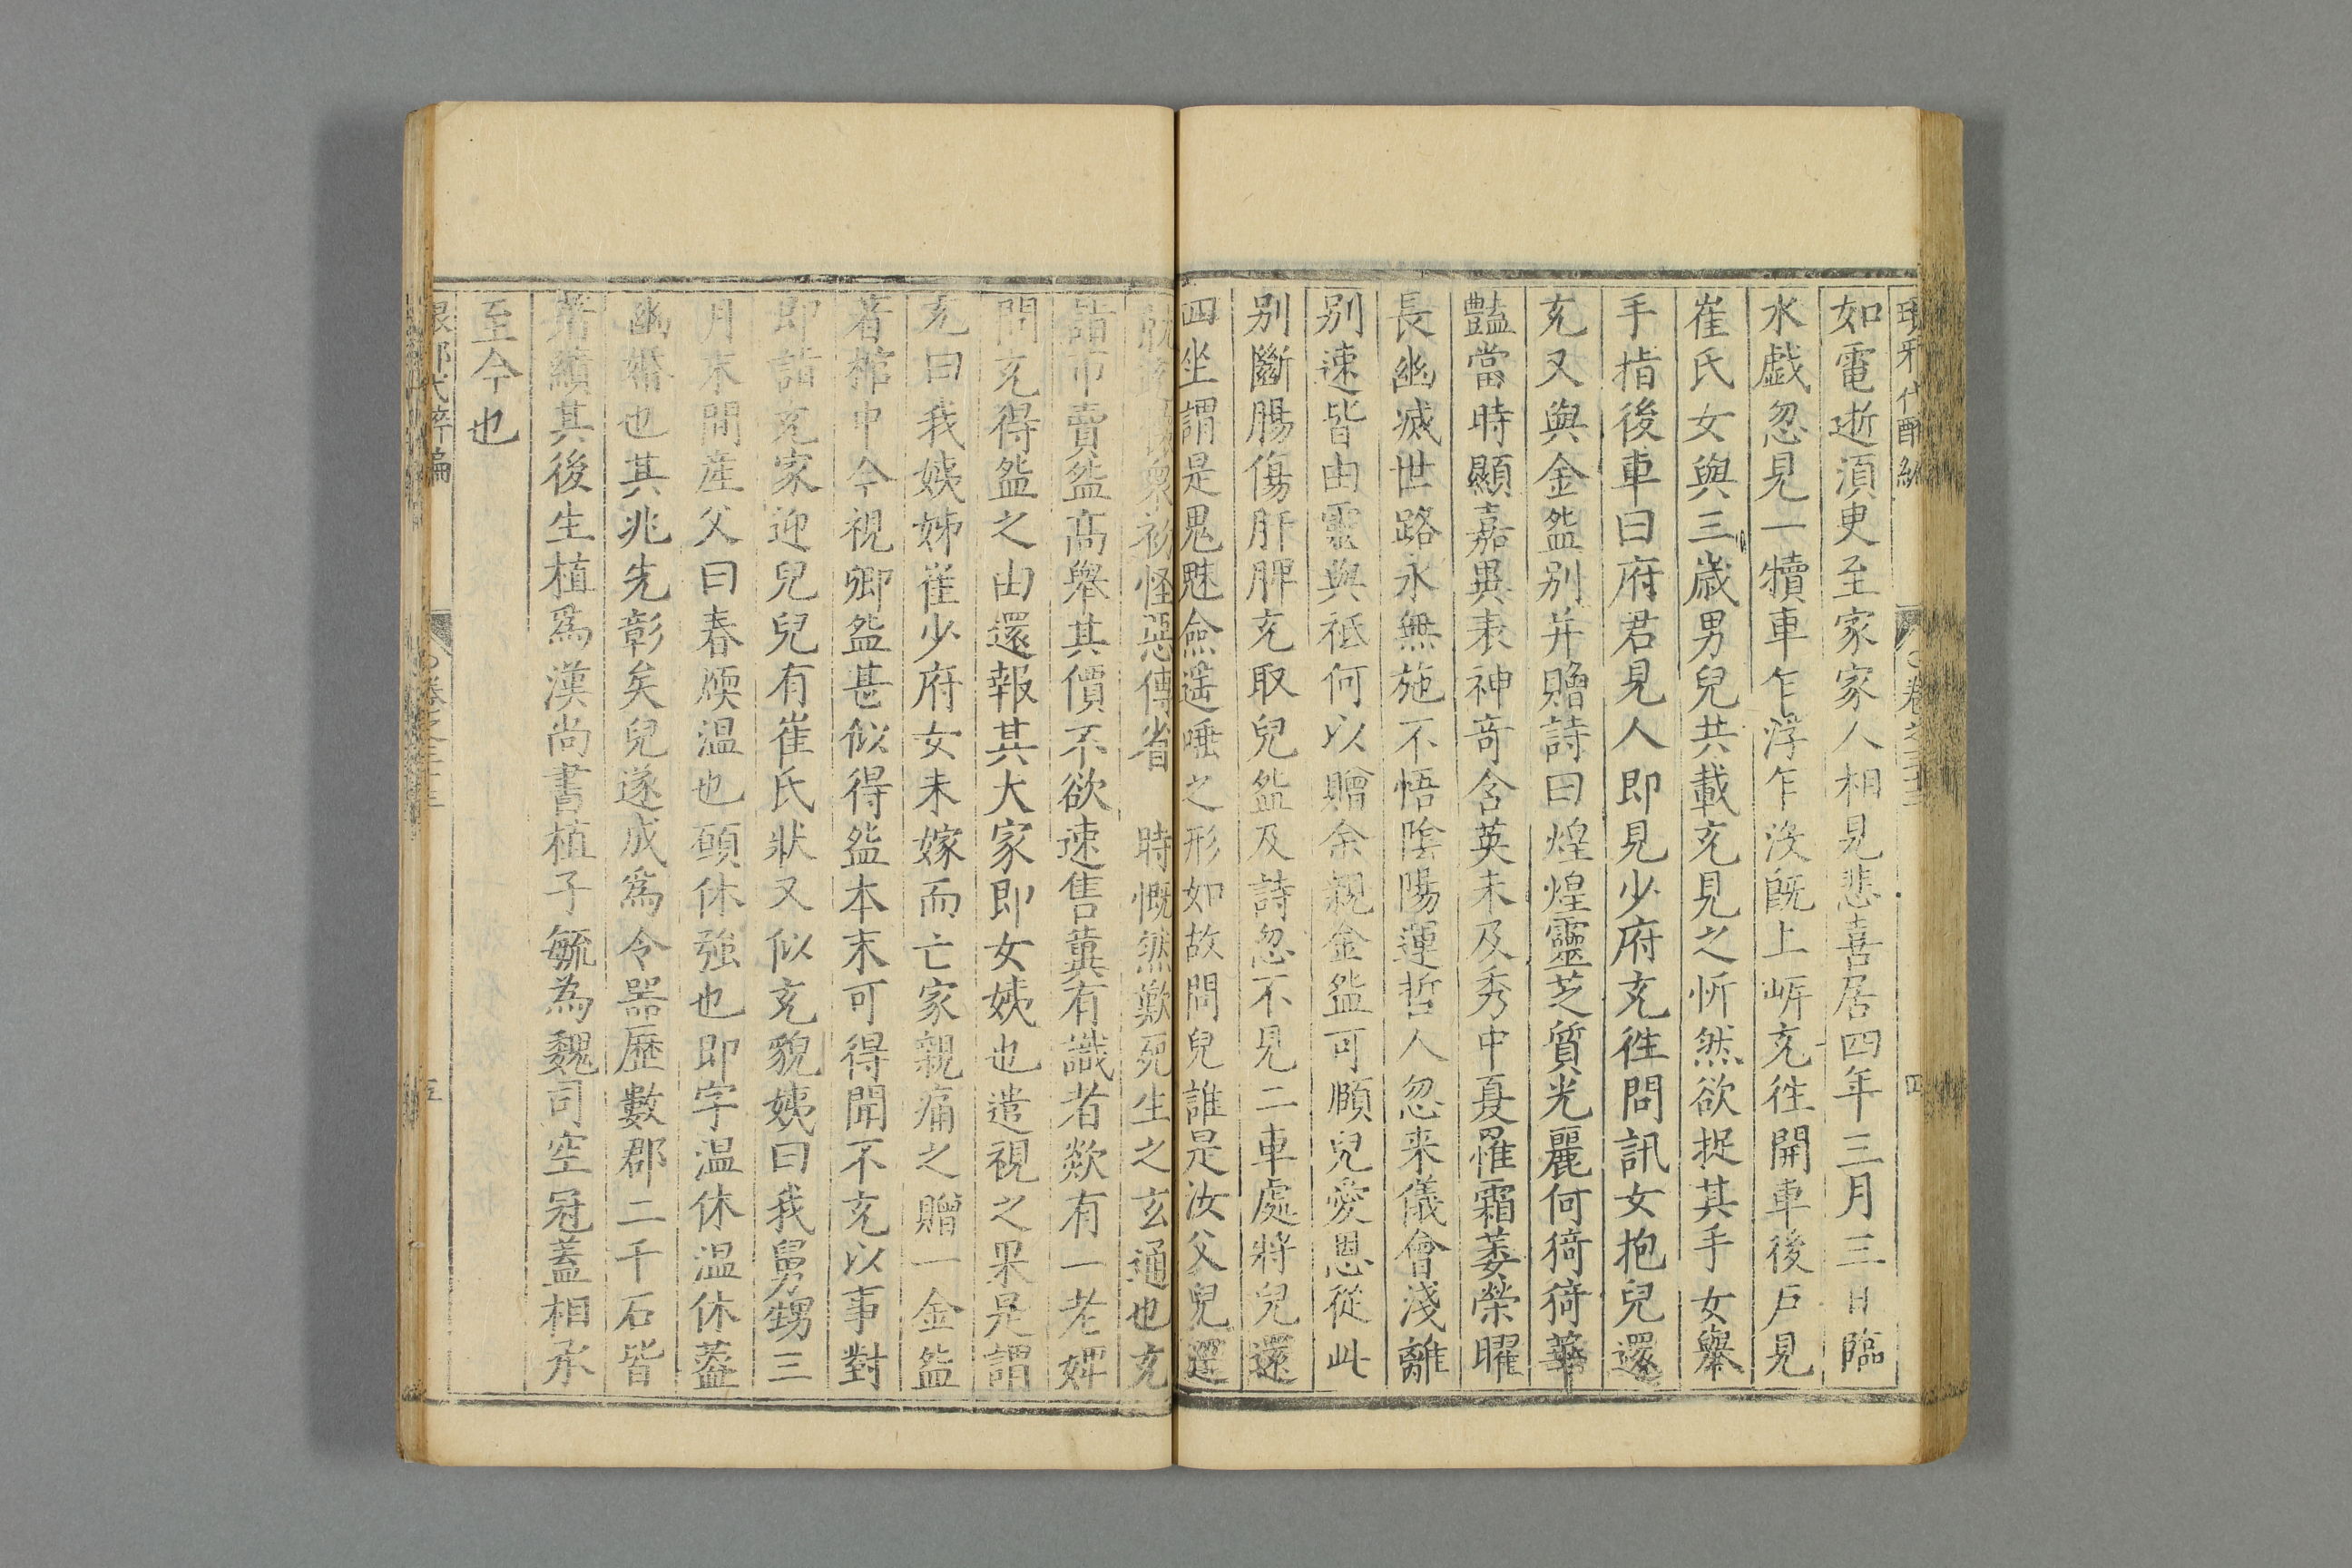 如電逝湏臾至家家人相見悲喜居四年三月三日臨
水戯忽見一犢車乍浮乍没旣上岍充徃開車後戶見
崔氏女與三歳男兒共載充見之忻然欲捉其手女舉
手指後車曰府君見人即見少府充徃問訊女抱兒還
充又與金盌别并贈詩曰煌煌靈芝質光麗何猗猗華
豔當時顯嘉異表神竒含英未及秀中夏罹霜萎榮曜
長幽滅世路永無施不悟陰陽運哲人忽来儀會淺離
别速皆由靈與祗何以贈余親金盌可頤兒愛恩從此
别斷腸傷肝脾充取兒盌及詩忽不見二車處將兒還
四坐謂是鬼魅僉遥唾之形如故問兒誰是汝父兒逕
就充懷衆初怪惡傳省 時慨然歎死生之玄通也充
詣市賣盌高舉其價不欲速售冀有識者欻有一老婢
問充得盌之由還報其大家即女姨也遣視之果是謂
充曰我姨姊崔少府女未嫁而亡家親痛之贈一金盌
著棺中今視卿盌甚似得盌本末可得聞不充以事對
即詣充家迎兒兒有崔氏狀又似充貌姨曰我舅甥三
月末間産父曰春煗温也頋休強也即字温休温休葢
幽婚也其兆先彰矣兒遂成爲令器歷數郡二千石皆
著績其後生植爲漢尚書植子毓為魏司空冠蓋相承
至今也